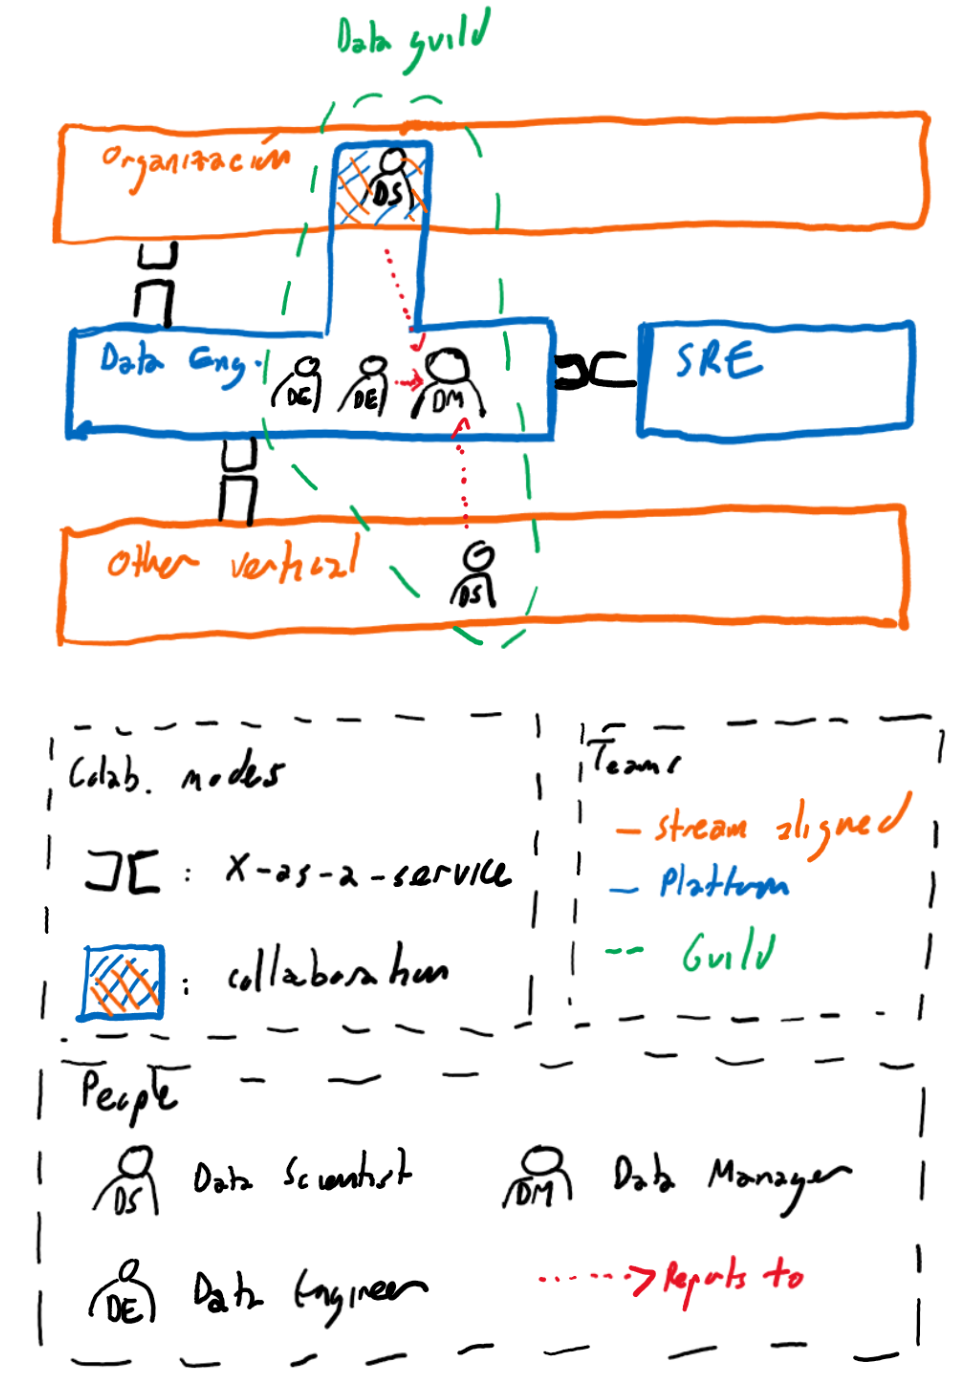 Data guild
Organización
DS
Data Eng.
DE
DE
DM
SRE
Other vertical
DS
Colab. modes
: X-as-a-service
: collaboration
Teams
- stream aligned
- Platform
-- Guild
People
DS Data Scientist
DM Data Manager
DE Data Engineer
Reports to